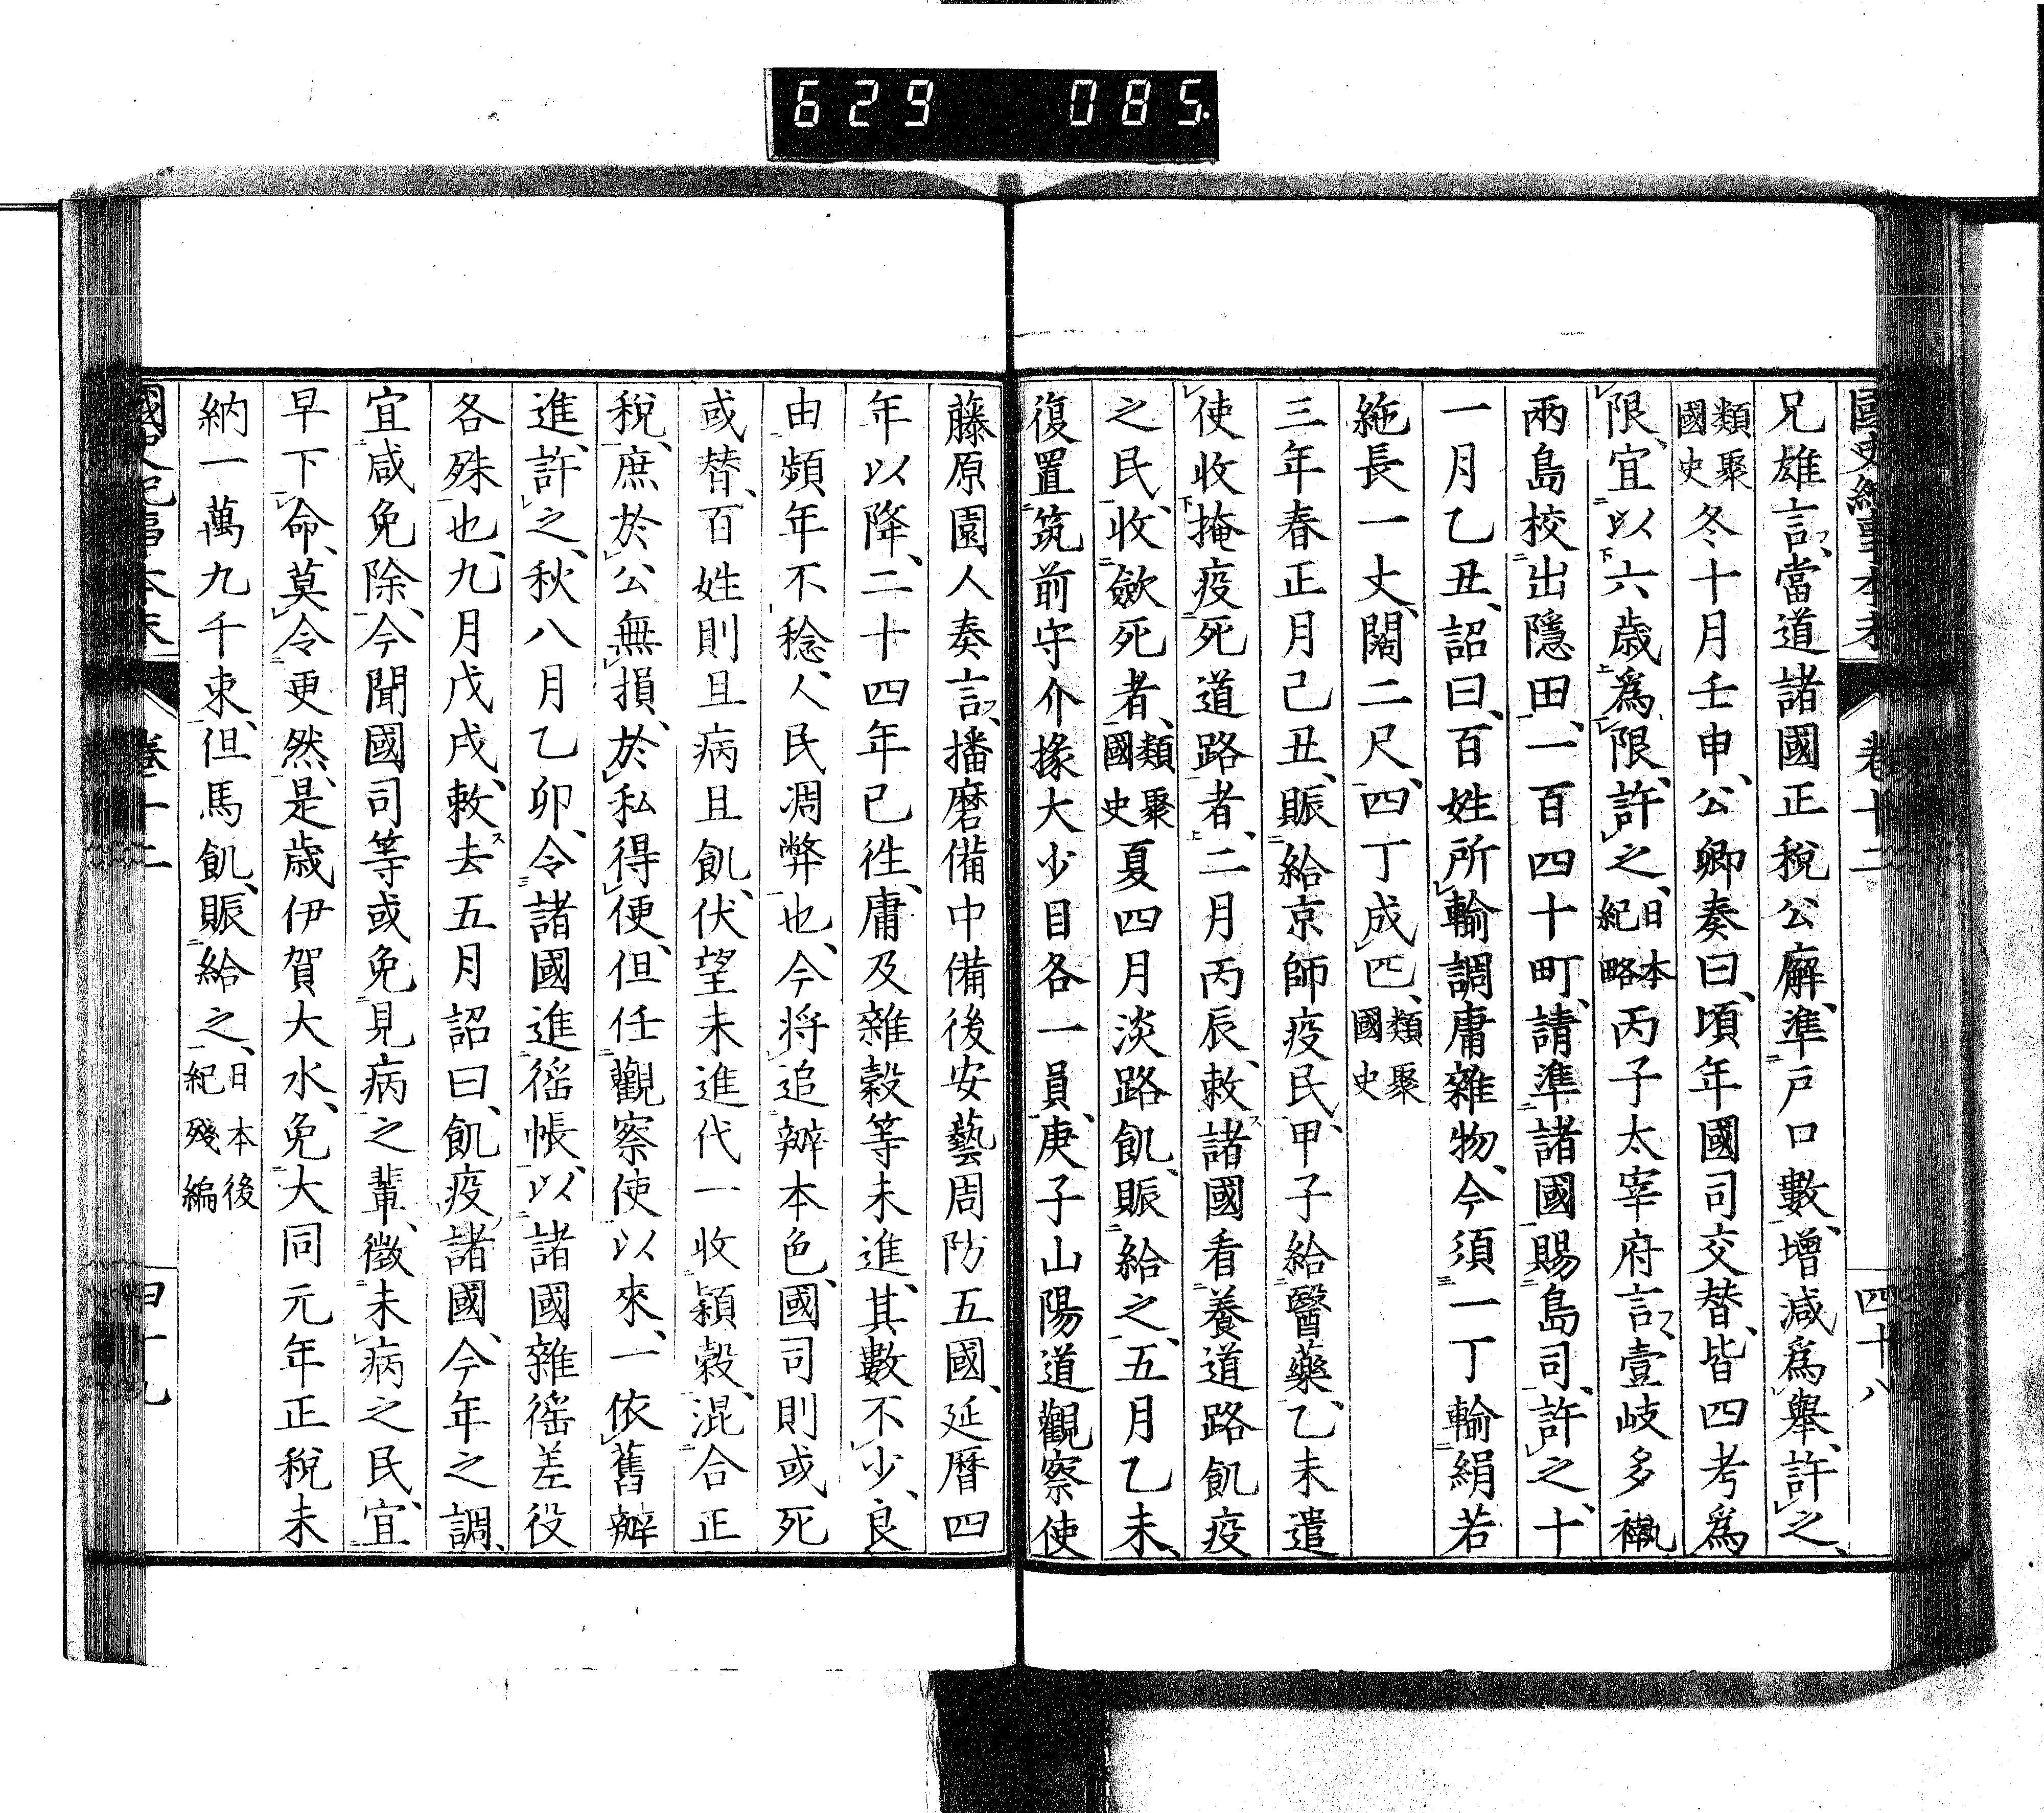 629 085.
國史紀事本末 卷十二 四十八
兄雄言、當道諸國正稅公廨、準戶口數、增減爲擧、許之、
類聚國史冬十月壬申、公卿奏曰、頃年國司交替、皆四考爲
限、宜以六歲爲限、許之、日本紀略丙子太宰府言、壹岐多褹
兩島校出隱田、一百四十町、請準諸國賜島司、許之、十
一月乙丑、詔曰、百姓所輸調庸雜物、今須一丁輸絹若
絁長一丈、闊二尺、四丁成匹、類聚國史
三年春正月己丑、賑給京師疫民、甲子給醫藥、乙未遣
使收掩疫死道路者、二月丙辰、敕諸國看養道路飢疫
之民、收斂死者、類聚國史夏四月淡路飢、賑給之、五月乙未、
復置筑前守介掾大少目各一員、庚子山陽道觀察使
藤原園人奏言、播磨備中備後安藝周防五國、延曆四
年以降、二十四年已徃、庸及雜穀等未進、其數不少、良
由頻年不稔、人民凋弊也、今將追辦本色、國司則或死
或替、百姓則且病且飢、伏望未進代一收穎穀、混合正
稅、庶於公無損、於私得便、但任觀察使以來、一依舊辦
進、許之、秋八月乙卯、令諸國進徭帳、以諸國雜徭差役
各殊也、九月戊戌、敕、去五月詔曰、飢疫諸國、今年之調、
宜咸免除、今聞國司等或免見病之輩、徵未病之民、宜
早下命、莫令更然、是歲伊賀大水、免大同元年正稅未
納一萬九千束、但馬飢、賑給之、日本後紀殘編
國史紀事本末 卷十二 四十九